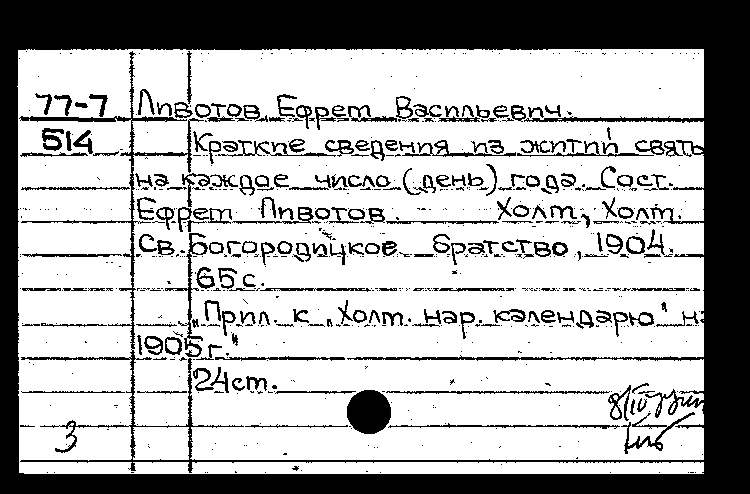 77-7 Ливотов, Ефрем Васильевич.
514 Краткие сведения из житий святы
на каждое число (день) года. Сост.
Ефрем Ливотов. Холм, Холм.
Св. Богородицкое братство, 1904.
65 с.
„Прил. к „Холм. нар. календарю" на
1905 г."
24 см.
3